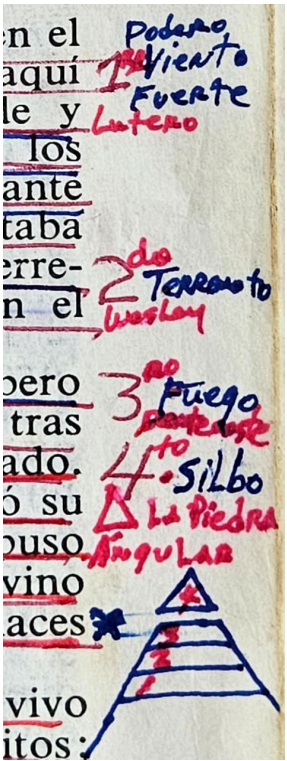 en el
aquí
le y
los
ante
taba
erre-
n el
pero
tras
ado.
ó su
ouso
vino
aces
vivo
itos:
Podero
1ro Viento
Fuerte
Lutero
2do
Terremoto
Wesley
3ro
Fuego
Pentecoste
4to
.Silbo
La Piedra
Angular
3
2
1